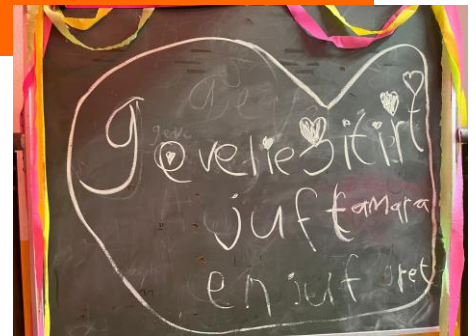 geveliesitirt
juf tamara
en juf gret